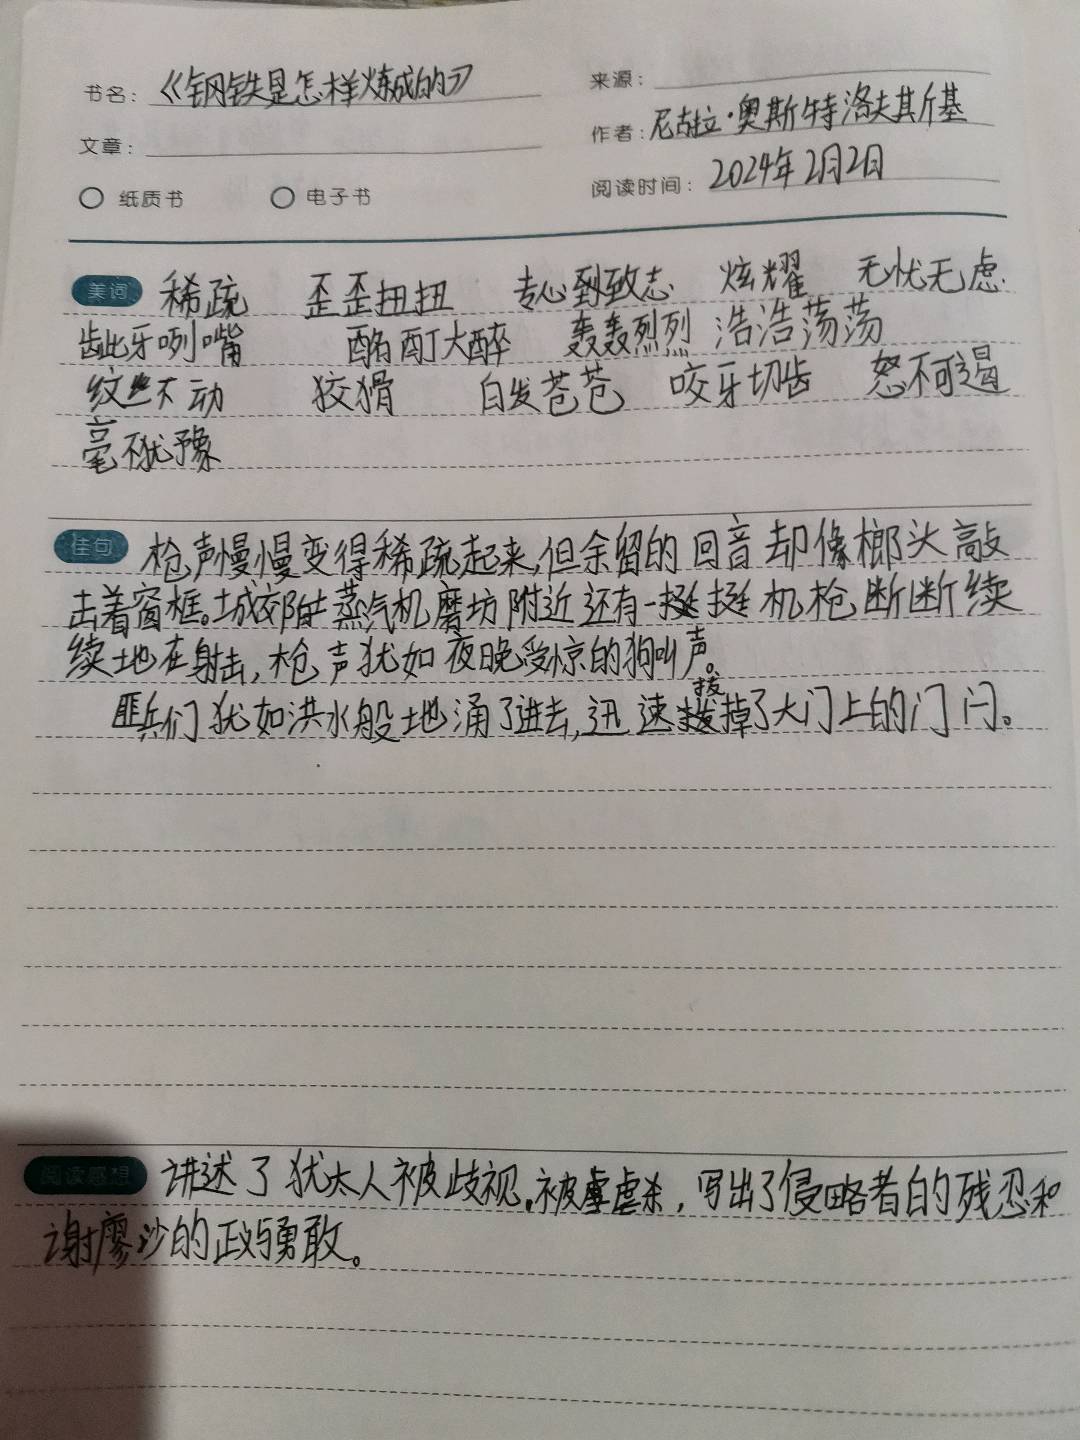 书名：《钢铁是怎样炼成的》
来源：
文章：
作者：尼古拉·奥斯特洛夫其斤基
纸质书 电子书
阅读时间：2024年2月2日
美词 稀疏 歪歪扭扭 专心致志 炫耀 无忧无虑
龇牙咧嘴 酩酊大醉 轰轰烈烈 浩浩荡荡
纹丝不动 狡猾 白发苍苍 咬牙切齿 怒不可遏
毫不犹豫
佳句 枪声慢慢变得稀疏起来，但余留的回音却像榔头敲
击着窗框。城郊附近蒸汽机磨坊附近还有一挺机枪断断续
续地在射击，枪声犹如夜晚受惊的狗叫声。
匪兵们犹如洪水般地涌了进去，迅速拔掉了大门上的门闩。
阅读感想 讲述了犹太人被歧视，被虐杀，写出了侵略者的残忍和
谢廖沙的正义与勇敢。